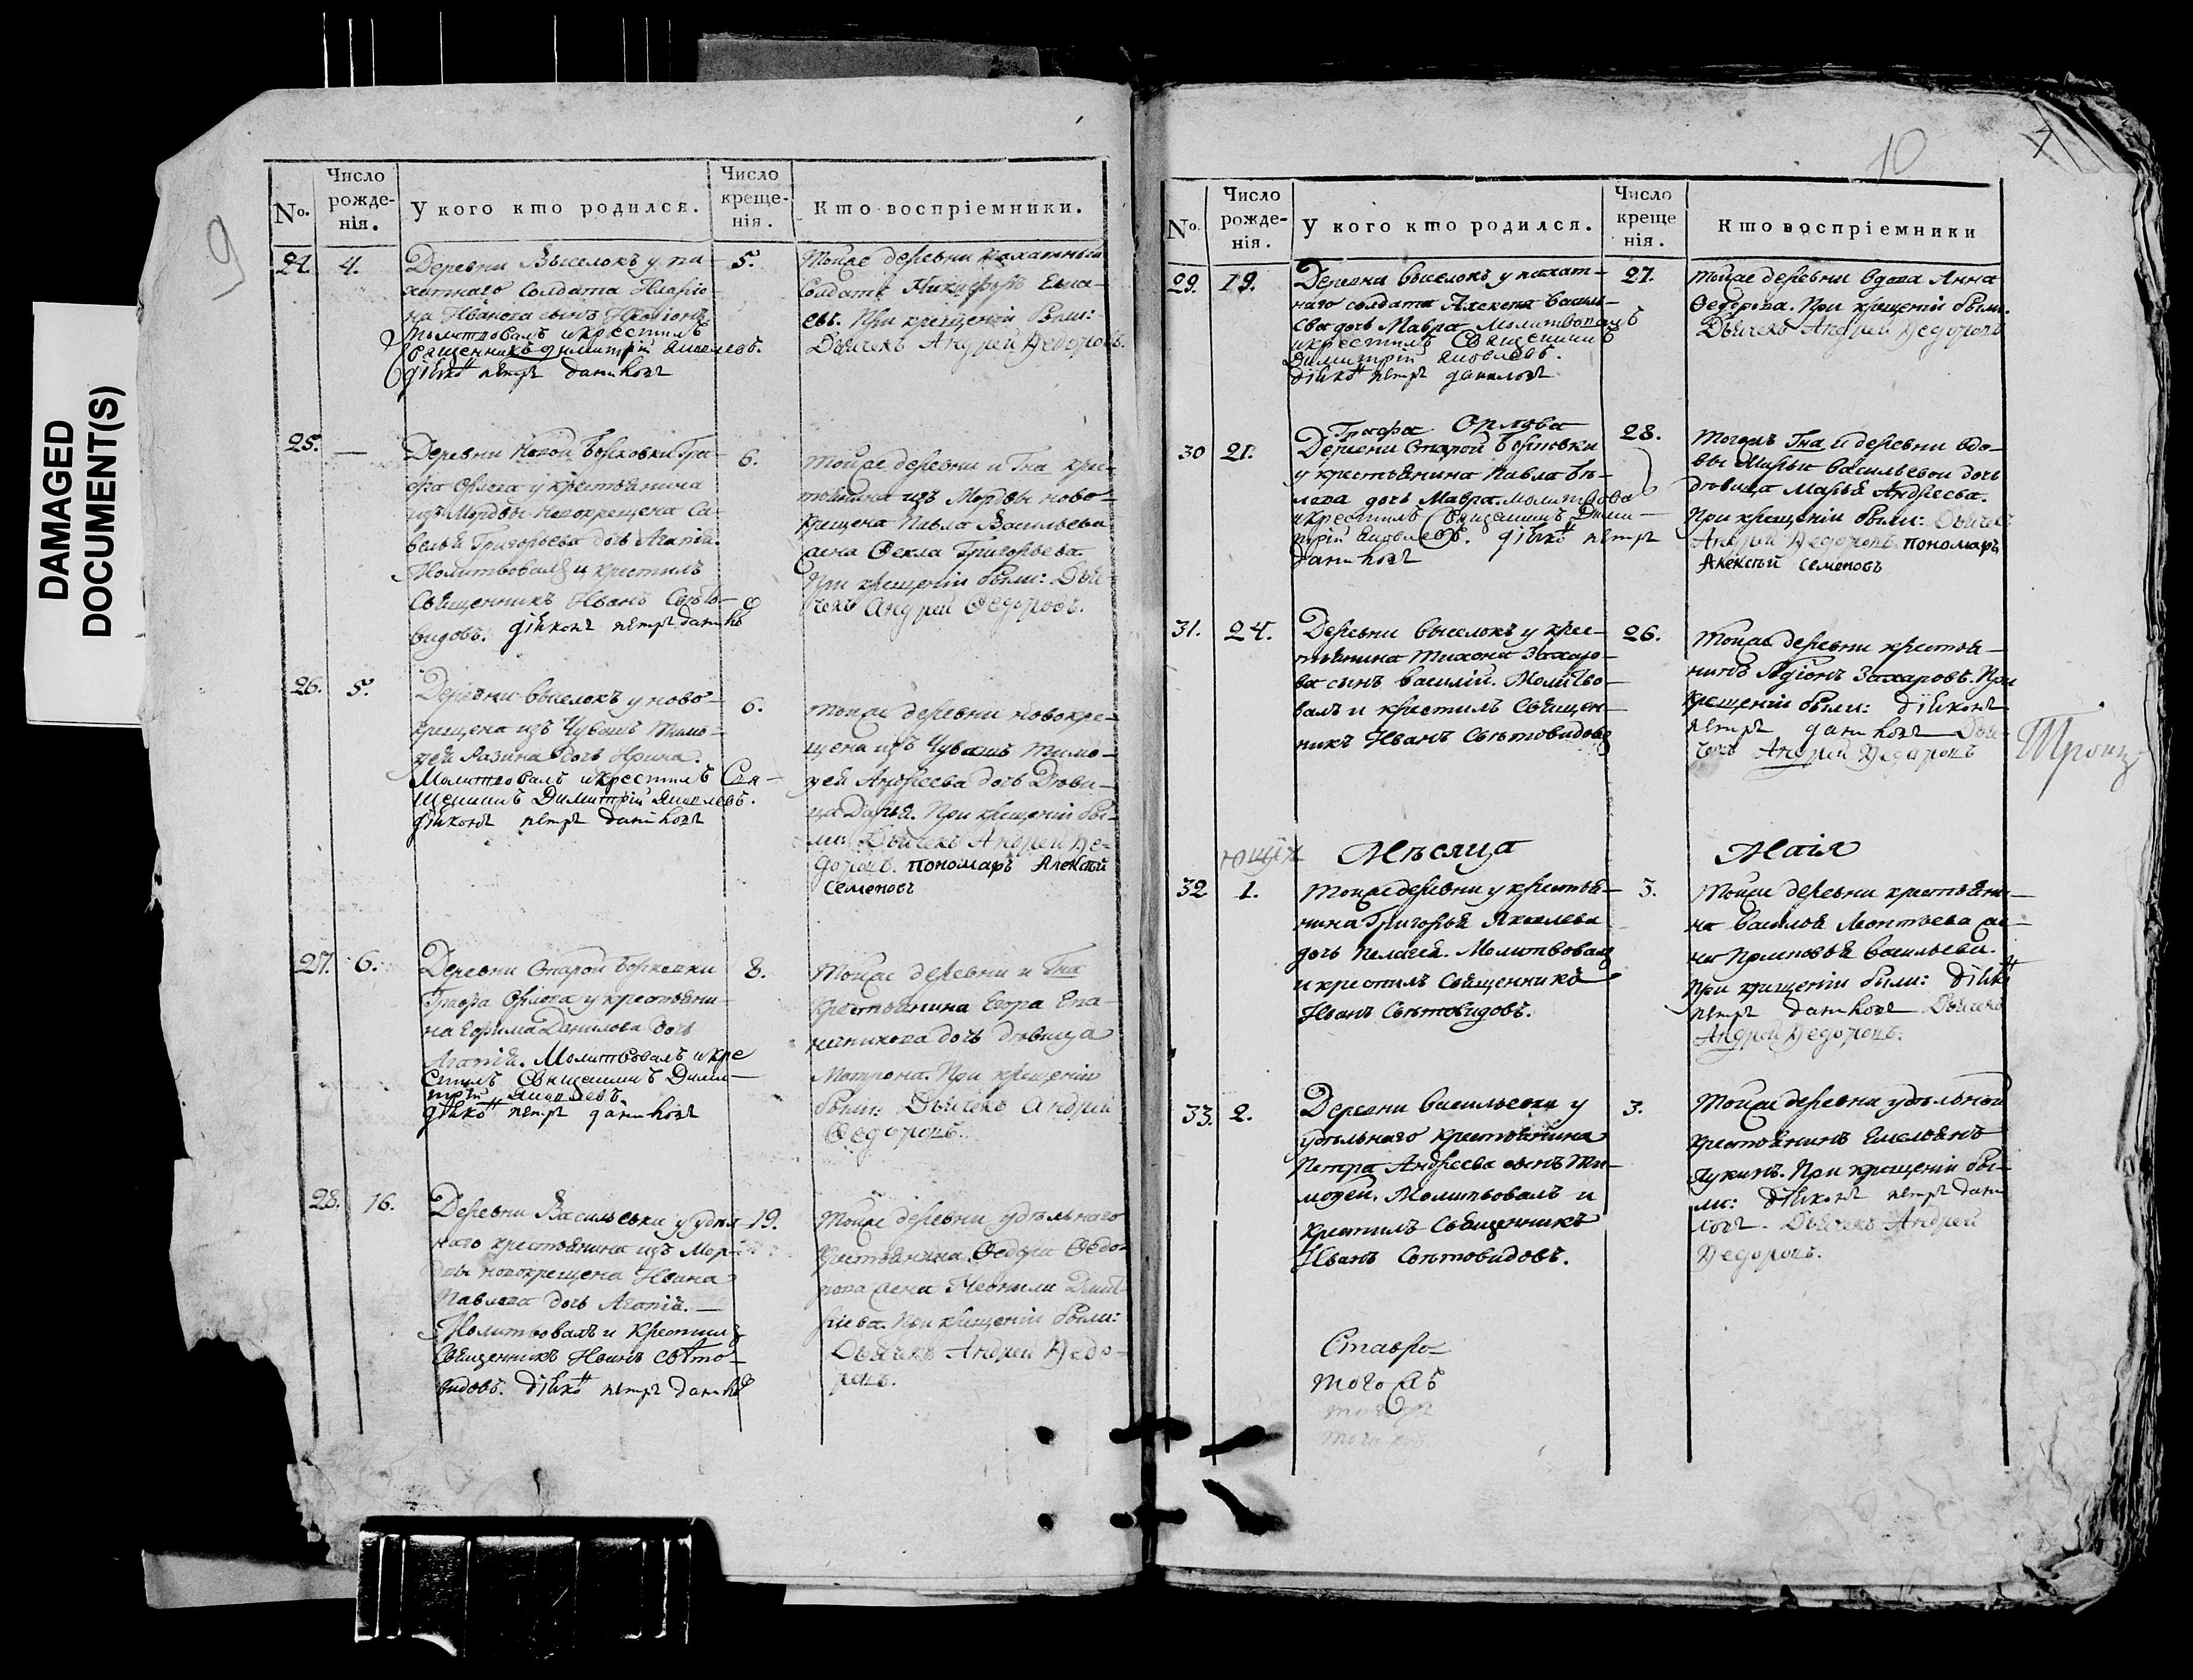 DAMAGED
DOCUMENT(S)
9
No.
Число рожденія.
У кого кто родился.
Число крещенія.
Кто воспріемники.
24. 4.
Деревни Выселокъ у па-
хатнаго солдата Иларіо-
на Иванова сынъ
молитвовалъ и крестилъ
Священникъ Димитрій Яковлевъ.
діяконъ петръ даниловъ
5.
тойже деревни пахатный
солдатъ Никифоръ
евъ. При крещеніи были:
Дьячекъ Андрей Ѳедоровъ.
25. —
Деревни Новой Борковки Гра-
фа Орлова у крестьянина
изъ Мордвы новокрещена Са-
велья Григорьева дочь Агапія.
Молитвовалъ и крестилъ
Священникъ Иванъ Свѣто-
видовъ. діяконъ петръ данило
6.
тойже деревни и Гна крес-
тьянина изъ Мордвы ново-
крещена Павла Васильева
жена Ѳекла Григорьева.
При крещеніи были: Дья-
чекъ Андрей Ѳедоровъ.
26. 5.
Деревни выселокъ у ново-
крещена изъ Чувашъ Тимо-
ѳей Разина дочь Ирина.
Молитвовалъ и крестилъ Свя-
щенникъ Димитрій Яковлевъ.
діяконъ петръ даниловъ
6.
тойже деревни новокре-
щена изъ Чувашъ Тимо-
ѳей Андреева дочь Дѣви-
ца Дарья. При крещеніи бы-
ли: Дьячекъ Андрей Ѳе-
доровъ. пономаръ Алексѣй
Семеновъ
27. 6.
Деревни Старой Борковки
Графа Орлова у крестьяни-
на Ефима Данилова дочь
Агапія. Молитвовалъ и кре
стилъ Священникъ Дими-
трій Яковлевъ.
діяко петръ даниловъ
8.
Тойже деревни и Гна
Крестьянина Егора
дочь дѣвица
Матрона. При крещеніи
были: Дьячекъ Андрей
Ѳедоровъ.
28. 16.
Деревни Васильевки у удѣл-
наго крестьянина изъ Мор-
двы новокрещена Ивана
Павлова дочь Агапія. —
Молитвовалъ и Крестилъ
Священникъ Иванъ Свѣто-
видовъ. діяко петръ данило
19.
Тойже деревни удѣльнаго
Крестьянина Ѳедора Ѳедо-
рова жена Неонила Дмит-
ріева. При крещеніи были:
Дьячекъ Андрей Ѳедо-
ровъ.
10
No.
Число рожденія.
У кого кто родился.
Число крещенія.
Кто воспріемники
29. 19.
Деревни выселокъ у пахат-
наго солдата Алексея Василь-
ева дочь Мавра Молитвовалъ
и крестилъ Священникъ
Димитрій Яковлевъ.
діяко петръ даниловъ
27.
тойже деревни вдова Анна
Ѳедорова. При крещеніи были.
Дьячекъ Андрей Ѳедоровъ
30 21.
Графа Орлова
Деревни Старой Борковки
у крестьянина Павла Бѣ-
лова дочь Мавра. молитвова
и крестилъ Священникъ Дими-
трій Яковлевъ. діяко петръ
даниловъ
28.
Тогожъ Гна и деревни вдо-
вы Марьи Васильевой дочь
дѣвица Марья Андреева.
При крещеніи были: Дьячекъ
Андрей Ѳедоровъ. пономаръ
Алексѣй Семеновъ
31. 24.
Деревни выселокъ у крес-
тьянина Тихона Захаро-
ва сынъ Василій. Молитво-
валъ и крестилъ Священ-
никъ Иванъ Свѣтовидовъ
26.
Тойже деревни крестья-
нинъ Родіонъ Захаровъ. При
крещеніи были: діяконъ
петръ даниловъ Дья-
чекъ Андрей Ѳедоровъ
Троиц
Мѣсяца Маія
32 1.
Тойже деревни у крестья-
нина Григорья Яковлева
дочь Пелагея. Молитвовалъ
и крестилъ Священникъ
Иванъ Свѣтовидовъ.
3.
Тойже деревни крестьяни-
на Василья Леонтьева же-
на Прасковья Васильева.
При крещеніи были: діяко
петръ даниловъ Дьячекъ
Андрей Ѳедоровъ.
33. 2.
Деревни Васильевки у
удѣльнаго крестьянина
Петра Андреева сынъ Ти-
моѳей. Молитвовалъ и
крестилъ Священникъ
Иванъ Свѣтовидовъ.
3.
Тойже деревни удѣльной
крестьянинъ Емельянъ
Лукинъ. При крещеніи бы-
ли: діяконъ петръ дани
ловъ. Дьячекъ Андрей
Ѳедоровъ.
Ставро-
того жъ